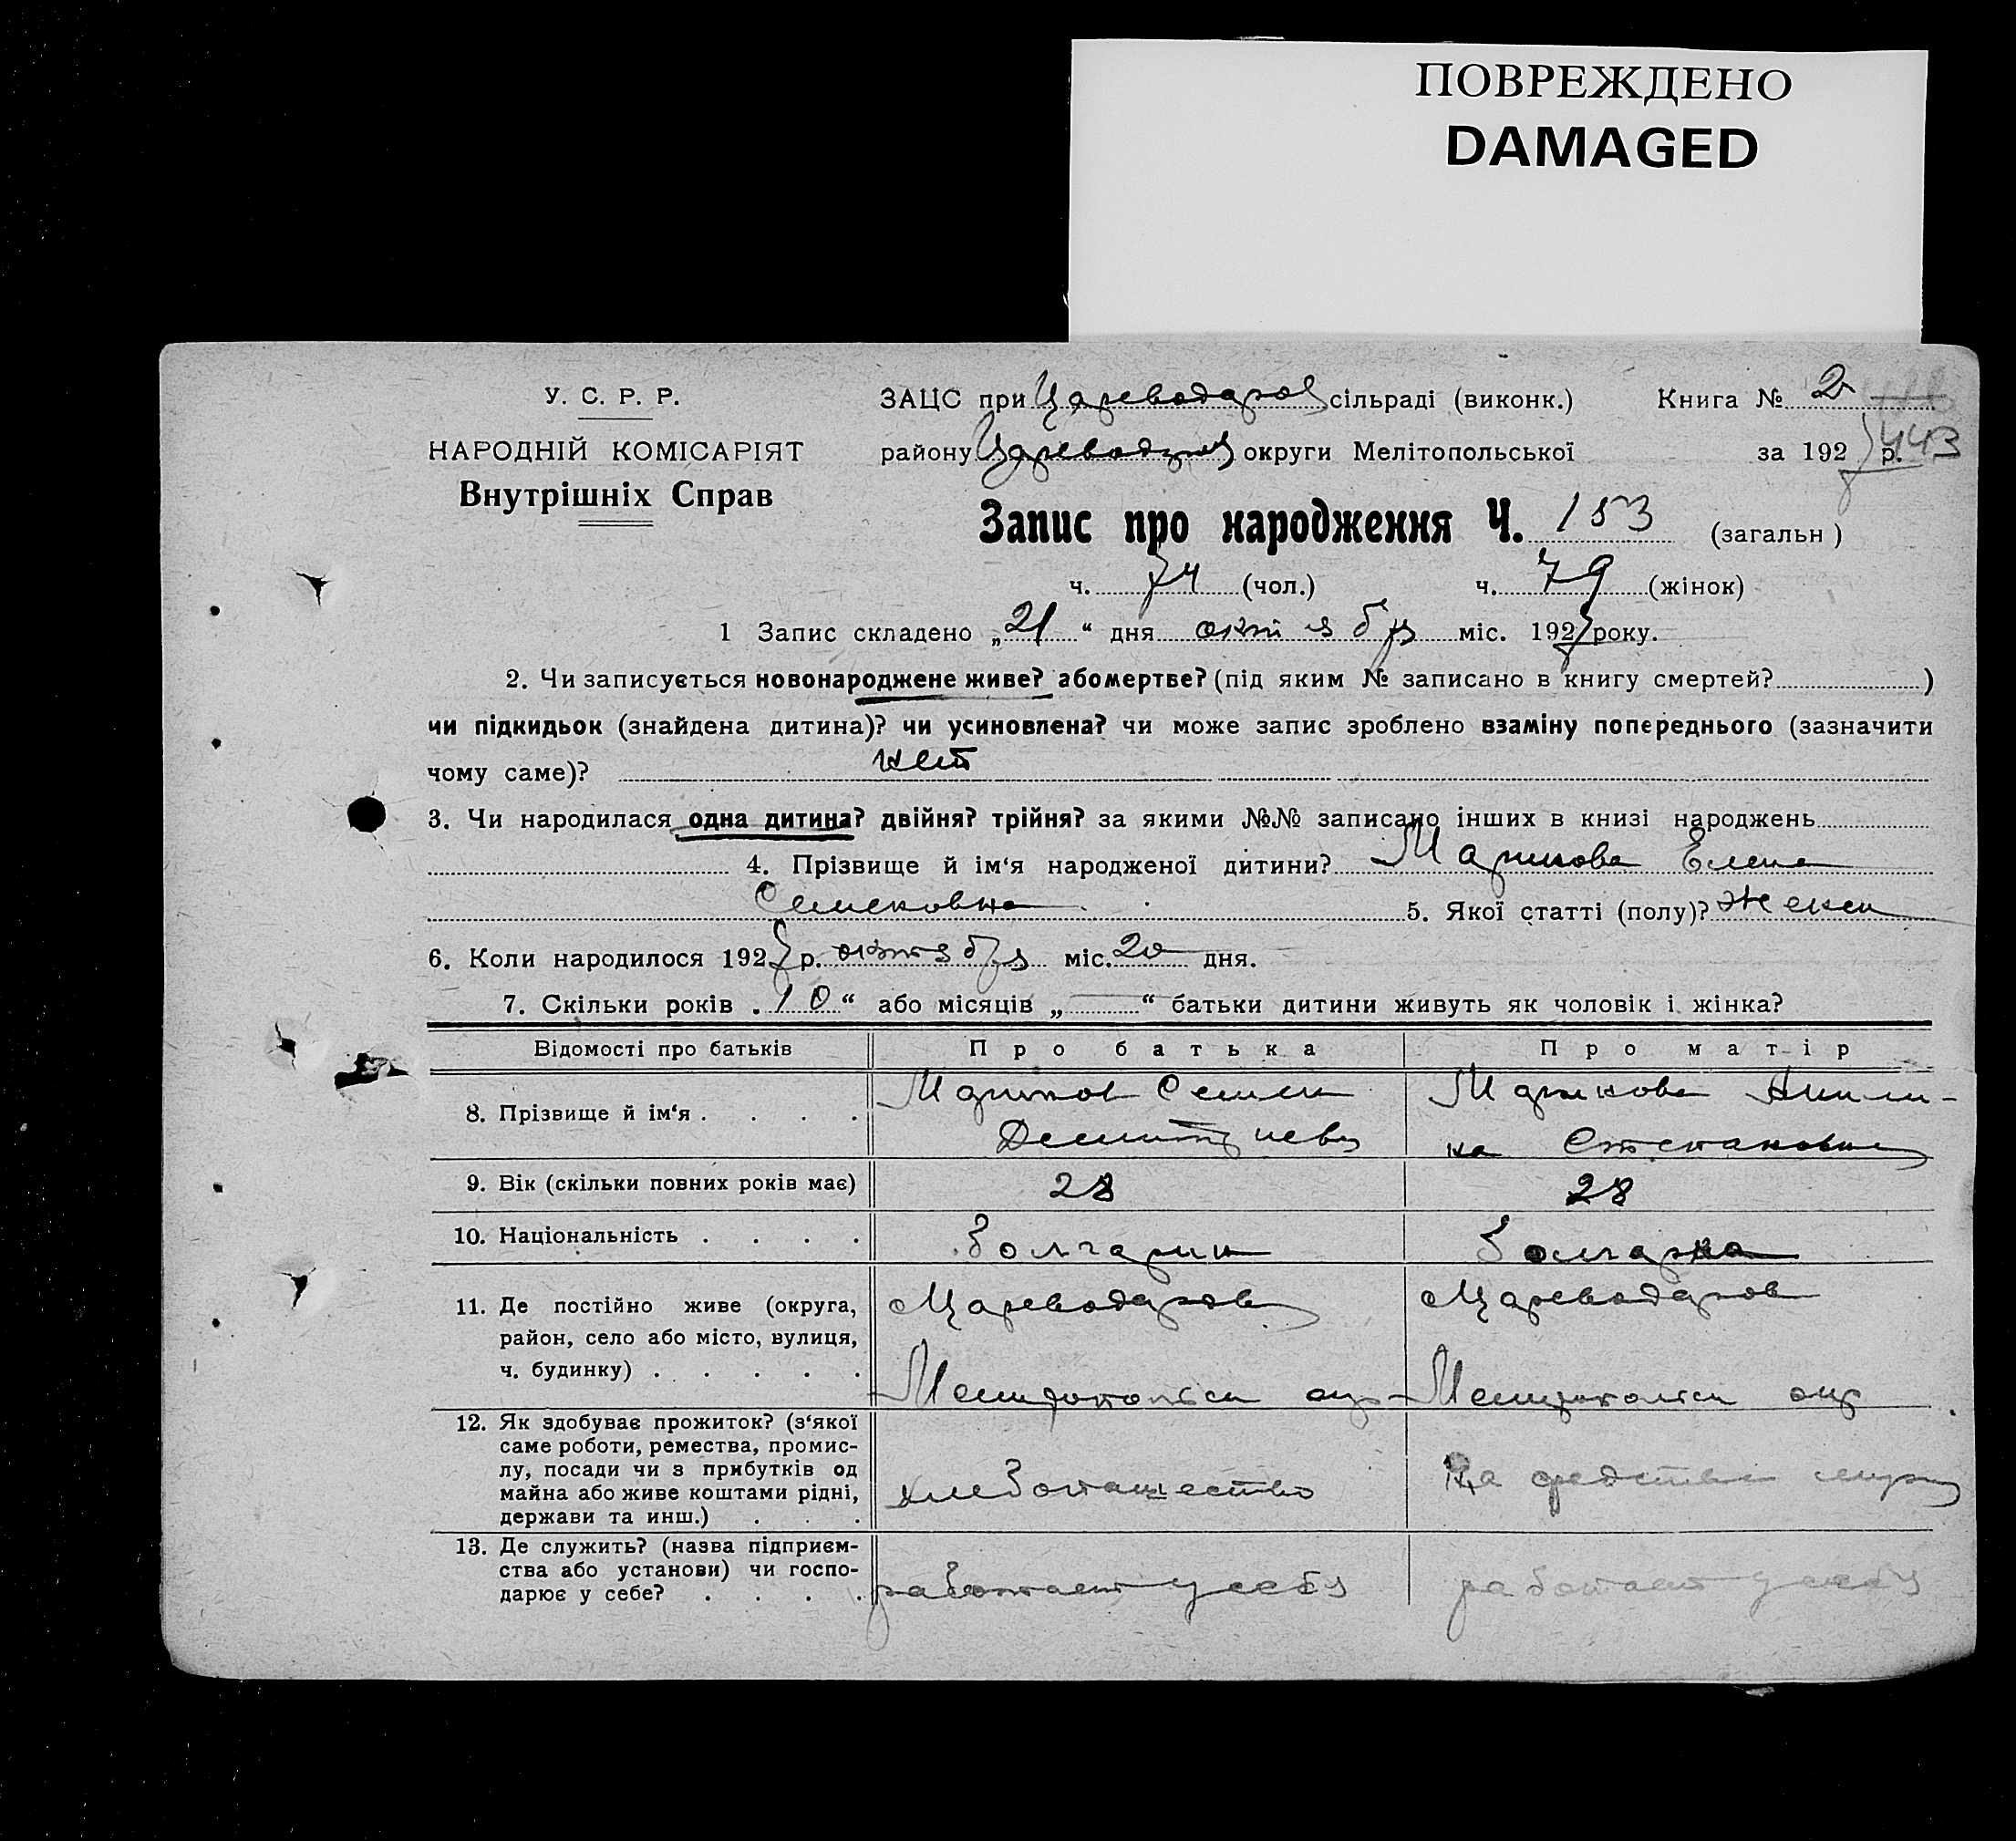 ПОВРЕЖДЕНО
DAMAGED
У. С. Р. Р.
НАРОДНІЙ КОМІСАРІЯТ
Внутрішніх Справ
ЗАЦС при Цареводаров сільраді (виконк.) Книга № 2
району Цареводар округи Мелітопольської за 1927 р. 443
Запис про народження Ч. 153 (загальн )
ч. 74 (чол.) ч. 79 (жінок)
1 Запис складено „21“ дня октября міс. 1927 року.
2. Чи записується новонароджене живе? або мертве? (під яким № записано в книгу смертей? )
чи підкидьок (знайдена дитина)? чи усиновлена? чи може запис зроблено взаміну попереднього (зазначити
чому саме)? нет
3. Чи народилася одна дитина? двійня? трійня? за якими №№ записано інших в книзі народжень
4. Прізвище й ім‘я народженої дитини? Маринова Елена
Семеновна 5. Якої статті (полу)? женск
6. Коли народилося 1927 р. октября міс. 20 дня.
7. Скільки років „10“ або місяців „—“ батьки дитини живуть як чоловік і жінка?
Відомості про батьків Про батька Про матір
8. Прізвище й ім‘я . . . . Маринов Семен Маринова
Дмитриев на Степановна
9. Вік (скільки повних років має) 28 28
10. Національність . . . . болгарин болгарка
11. Де постійно живе (округа, Цареводаров Цареводаров
район, село або місто, вулиця,
ч. будинку) . . . . . Мелитопольск окр Мелитопольск окр
12. Як здобуває прожиток? (з‘якої
саме роботи, ремества, промис-
лу, посади чи з прибутків од
майна або живе коштами рідні, хлебопашество На средства мужа
держави та инш.) . . .
13. Де служить? (назва підприєм-
ства або установи) чи госпо-
дарює у себе? . . . . работает у себя работает у себя